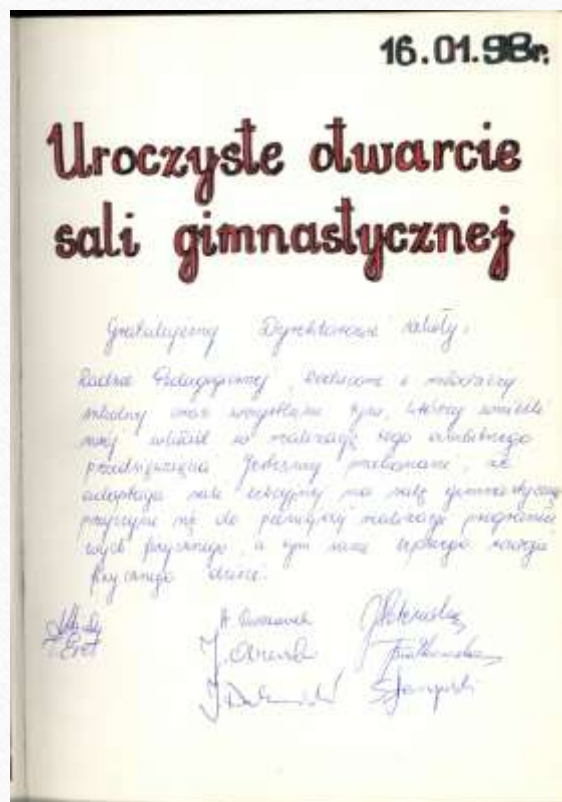 16.01.98r.
Uroczyste otwarcie
sali gimnastycznej
Gratulujemy Dyrektorowi szkoły,
Radzie Pedagogicznej, Rodzicom i młodzieży
szkolnej oraz wszystkim tym, którzy wnieśli
swój wkład w realizację tego ambitnego
przedsięwzięcia. Jesteśmy przekonani, że
adaptacja sali lekcyjnej na salę gimnastyczną
przyczyni się do pełniejszej realizacji programu
wych. fizycznego, a tym samym lepszego rozwoju
fizycznego dzieci.